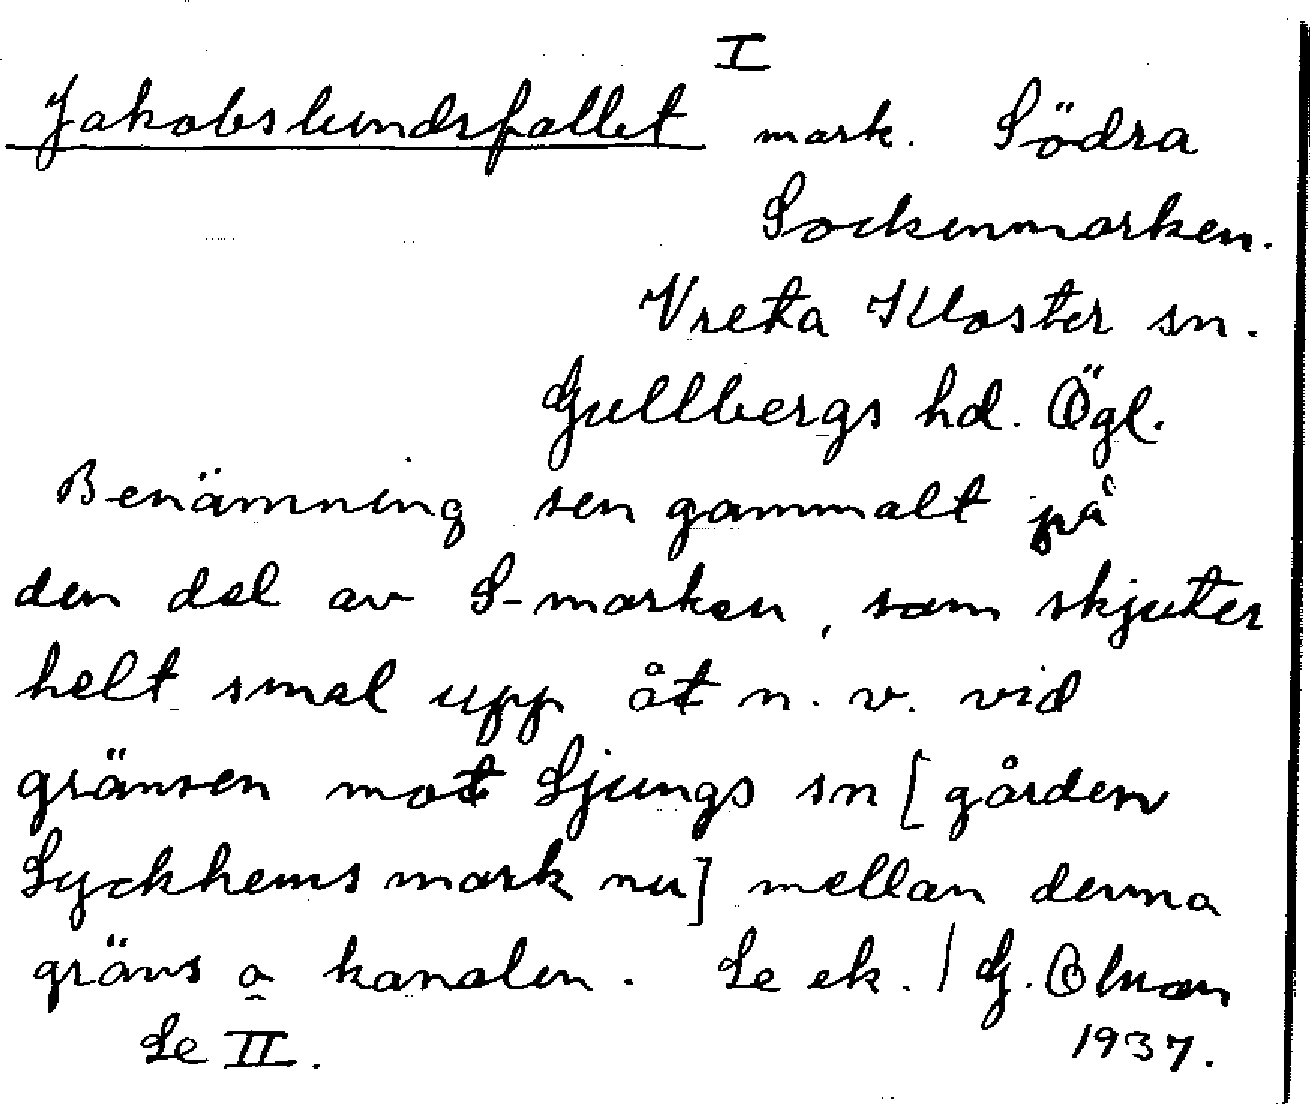 I
Jakobslundsfallet mark. Södra
Sockenmarken.
Vreta Kloster sn.
Gullbergs hd. Ögl.
Benämning sen gammalt på
den del av S-marken, som skjuter
helt smal upp åt n. v. vid
gränsen mot Ljungs sn [gården
Lyckhems mark nu] mellan denna
gräns o kanalen. Se ek. / G.
Se II. 1937.